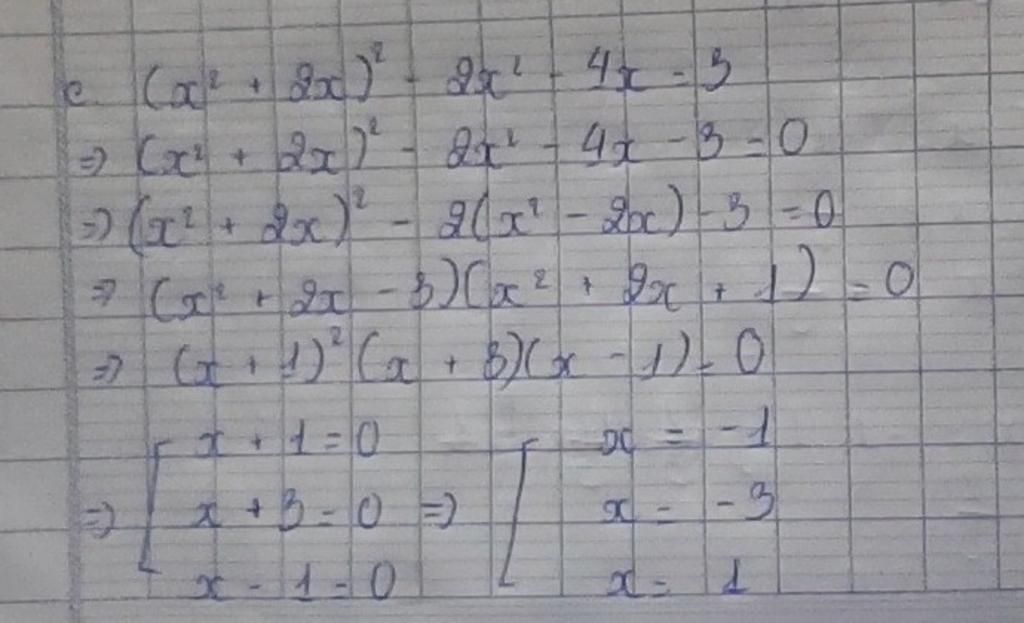 c. (x² + 2x)² - 2x² - 4x = 3
=> (x² + 2x)² - 2x² - 4x - 3 = 0
=> (x² + 2x)² - 2(x² - 2x) - 3 = 0
=> (x² + 2x - 3)(x² + 2x + 1) = 0
=> (x + 1)²(x + 3)(x - 1) = 0
=> [ x + 1 = 0 [ x = -1
x + 3 = 0 => x = -3
x - 1 = 0 x = 1